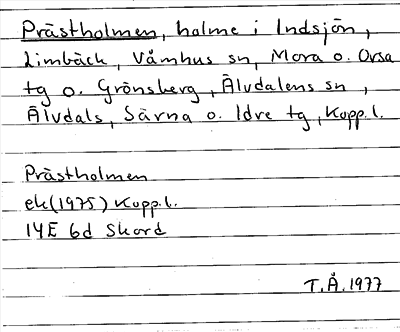 Prästholmen, holme i Indsjön,
Limbäck, Våmhus sn, Mora o. Orsa
tg o. Grönsberg, Älvdalens sn,
Älvdals, Särna o. Idre tg, Kopp.l.
Prästholmen
ek(1975) Kopp.l.
14E 6d Skord
T.Å.1977